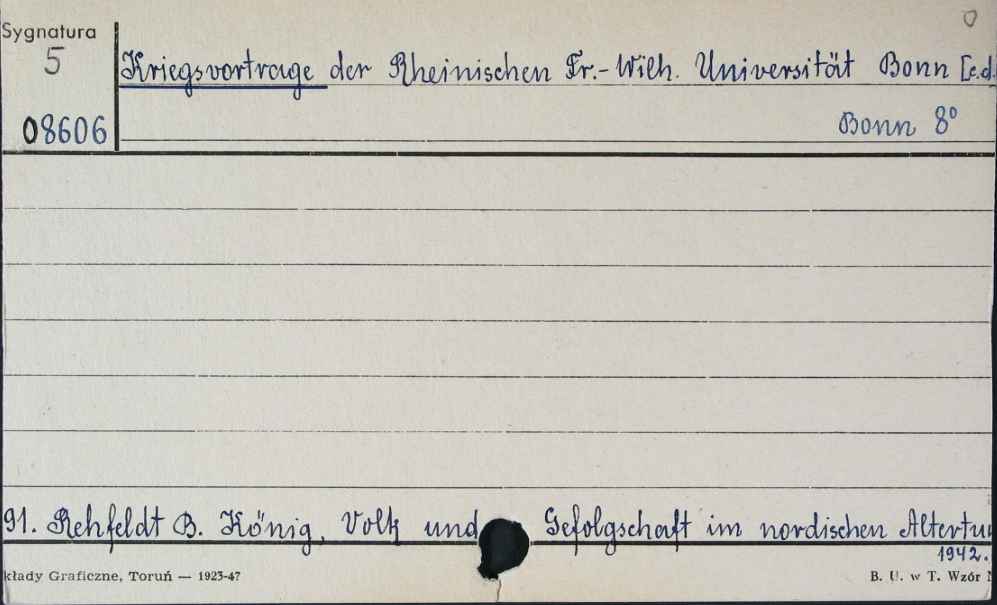 Sygnatura
5
08606
Kriegsvortrage der Rheinischen Fr.-Wilh. Universität Bonn [c.d.
Bonn 8°
91. Rehfeldt B. König, Volk und Gefolgschaft im nordischen Altertu
1942.
kłady Graficzne, Toruń — 1923-47
B. U. w T. Wzór